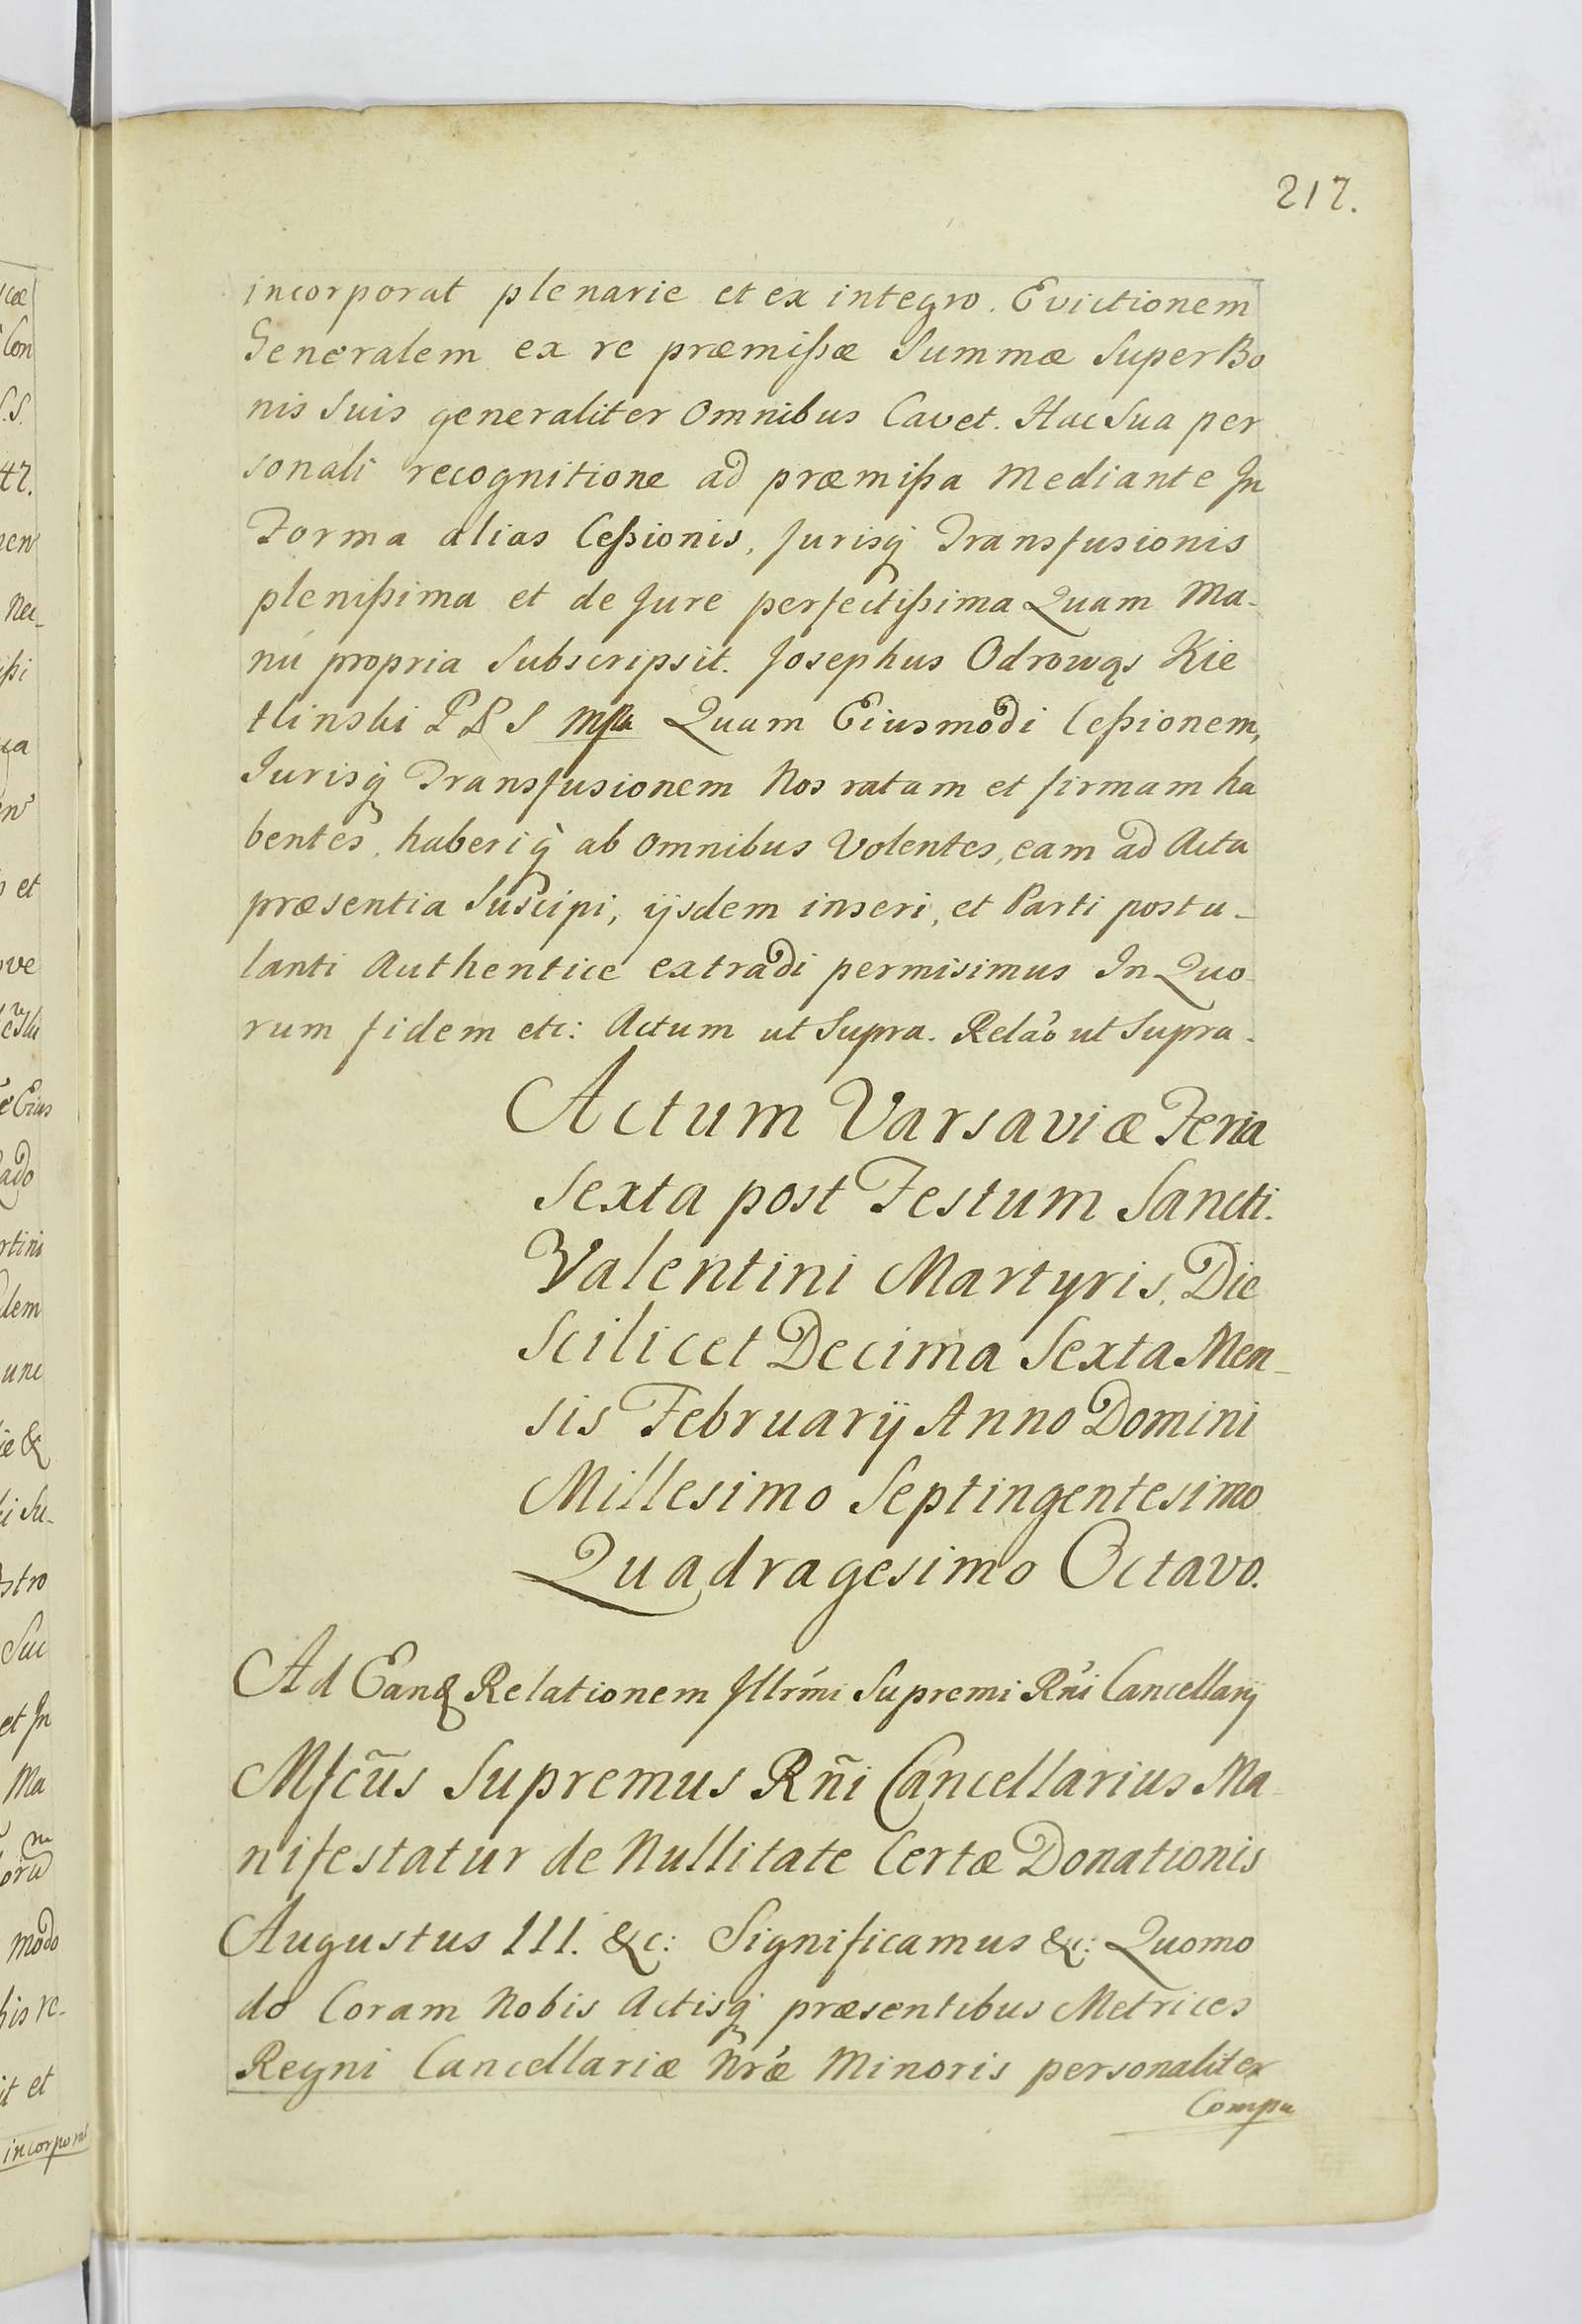 217.
incorporat plenarie et ex integro. Evictionem
Generalem ex re præmißæ Summæ Super Bo
nis Suis generaliter Omnibus Cavet. Hac Sua per
sonali recognitione ad præmißa Mediante In
Forma alias Ceßionis, Jurisq̀ Transfusionis
plenißima et de Jure perfectißima Quam Ma-
nú propria Subscripsit. Josephus Odrowąs Kie
tlinski P P S mpa Quam Eiusmodi Ceßionem,
Jurisq̀ Transfusionem Nos ratam et firmam ha
bentes, haberiq̀ ab Omnibus Volentes, eam ad Acta
præsentia Suscipi, ijsdem inseri, et Parti postu-
lanti Authentice extradi permisimus In Quo
rum fidem etc: Actum ut Supra. Relão ut Supra.
Actum Varsaviæ Feria
Sexta post Festum Sancti
Valentini Martyris, Die
Scilicet Decima Sexta Men-
sis Februarij Anno Domini
Millesimo Septingentesimo
Quadragesimo Octavo.
Ad Eanq Relationem Illrḿi Supremi Rńi Cancellarij
Mfcũs Supremus Rñi Cancellarius Ma
nifestatur de Nullitate Certæ Donationis
Augustus III. &c: Significamus &c: Quomo
do Coram Nobis Actisq̀ præsentibus Metrices
Regni Cancellariæ Nr̃æ Minoris personaliter
Compa